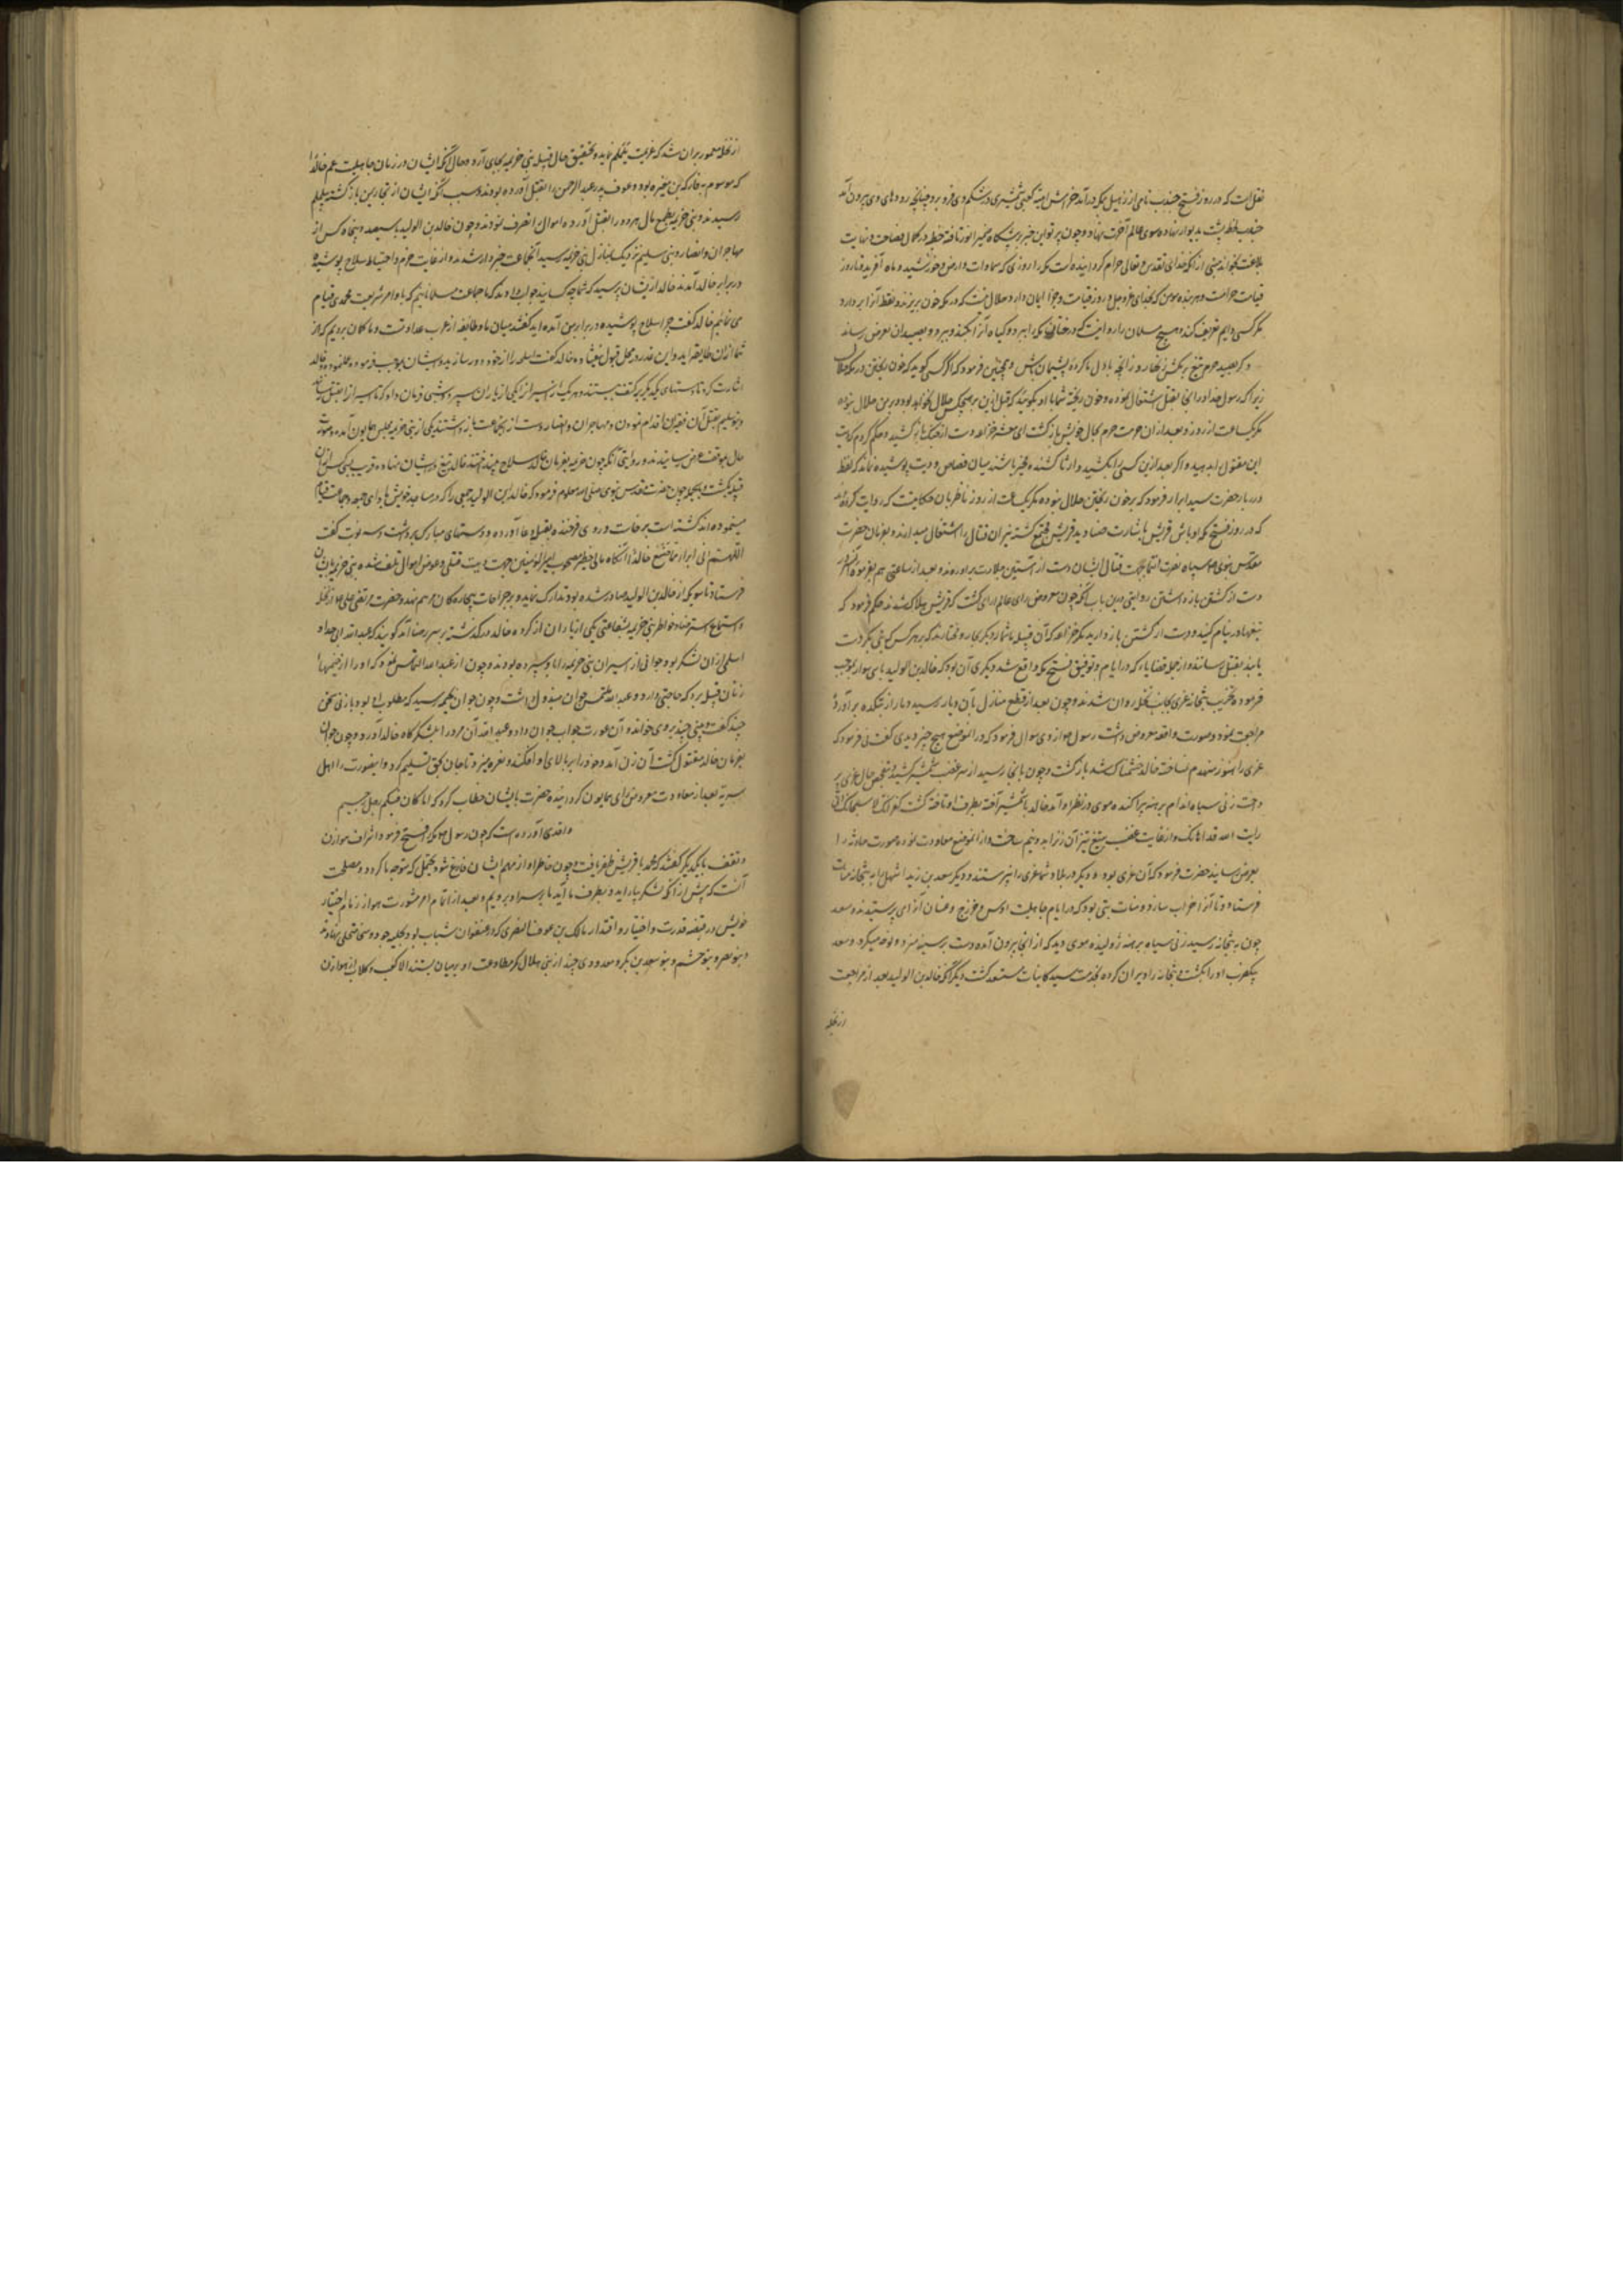 نقل است که در روز فتح جندب نامی از هذیل بمکه درآمد خراش بن امیه کعبی شمشیری در شکم وی فرو برد چنانچه رودهای وی بیرون آمد
جندب پشت بدیوار نهاده سوی عالم آخرت نهاد و چون پرتو این خبر بر پیشگاه ضمیر انور تافت خطبه در کمال فصاحت و نهایت
بلاغت بخواند مبنی از آنکه خدای تقدس و تعالی حرام گردانیده است مکه را روزی که سماوات و ارض و خورشید و ماه آفرید تا روز
قیامت حرامست و هر بنده مومن که بخدای عزوجل و روز قیامت و جزا ایمان دارد حلال نیست که در مکه خون بریزد و لقطه آنرا بردارد
مگر کسی دایم تعریف کند و هیچ مسلمان را روا نیست که درختان مکه را ببرد و گیاه آنرا بکند و ببرد و بصیدان تعرض رساند
و گر بصید حرم تیغ برکشی زنهار وز آنچه با دل ما کرده پشیمان باش و همچنین فرمود که اگر کسی گوید که خون ریختن در مکه حلال
زیرا که رسول خدا در آنجا بقتل اشتغال نموده و خون ریخته شما با او بگویند که قبل ازین بر هیچکس حلال نخواهد بود و بر من حلال نبوده
مگر یکساعت از روز و بعد از آن حرمت حرم بحال خویش بازگشت ای معشر خزاعه دست از جنگ باز کشید و حکم کردم که دیت
این مقتول ادا بدهید و اگر بعد ازین کسی را بکشید وارثان کشنده مخیر باشند میان قصاص و دیت پوشیده نماند که لفظ
دربار حضرت سید ابرار فرمود که بر من خون ریختن حلال نبوده مگر یکساعت از روز ناظر بآن حکایتست که روایت کرده‌اند
که در روز فتح مکه اوباش قریش باشارت صنادید قریش مجتمع گشته نیران قتال را اشتعال میدادند و بفرمان حضرت
مقدس نبوی سپاه نصرت انتما بجهت قتال ایشان دست از آستین جلادت برآوردند و بعد از ساعتی هم بفرموده آنسرور
دست از کشتن باز داشتن روایتی درین باب آنکه چون معروض رای عالم آرای گشت که قریش هلاک شدند حکم فرمود که
تیغها در نیام کنید و دست از کشتن باز دارید مگر خزاعه که آن قبیله تا نماز دیگری مختارند که بر هر کس از بنی بکر دست
یابند بقتل رسانند و از جمله قضایا که در ایام توفیق فتح مکه واقع شد دیگری آن بود که خالد بن الولید با سی سوار بموجب
فرموده بتخریب بتخانه عزی بجانب نخله روان شدند و چون بعد از قطع منازل بآن دیار رسید دمار از بتکده برآورد
مراجعت نمود و صورت واقعه معروض داشت رسول از وی سوال فرمود که در آن موضع هیچ چیز دیدی گفت نی فرمود که
عزی را هنوز منهدم نساخته خالد خشمناک شد بازگشت و چون بآنجا رسید از سر غضب شمشیر کشیده
زنی سیاه اندام برهنه پراکنده موی در نظر او آمد خالد با شمشیر آخته بطرف او تاخته گفت کفرانک لا سبحانک انی
رایت الله قد اهانک و از غایت غضب بتیغ تیز آن زن را بدو نیم ساخت و از آن موضع معاودت نموده صورت حادثه را
بعرض رسانید حضرت فرمود که آن عزی بود و دیگر در بلاد شما عزی را نپرستند و دیگر سعد بن زید اشهلی را به بتخانه منات
فرستاد و تا آنرا خراب سازد و منات بتی بود که در ایام جاهلیت اوس و خزرج و غسان آنرا می پرستیدند و سعد
چون به بتخانه رسید زنی سیاه برهنه ژولیده موی دید که از آنجا بیرون آمده دست بر سینه میزد و نوحه میکرد و سعد
بیک ضرب او را بکشت و بتخانه را ویران کرده بخدمت سید کاینات مستسعد گشت دیگر آنکه خالد بن الولید بعد از مراجعت
از نخله
از نخله مامور بدان شد که عزیمت یلملم نماید و تحقیق حال قبیله بنی خزیمه بجای آرد و حال آنکه ایشان در زمان جاهلیت عم خالد را
که موسوم به فاکه بن مغیره بود و عوف پدر عبدالرحمن را بقتل آورده بودند و سبب آنکه ایشان از تجارت یمن بازگشته بیلملم
رسیدند و بنی خزیمه بطمع مال هر دو را بقتل آورده اموال را تصرف نمودند و چون خالد بن الولید با سیصد و پنجاه کس از
مهاجران و انصار و بنی سلیم نزدیک بمنازل بنی خزیمه رسید آنجماعت خبردار شدند و از غایت حزم و احتیاط سلاح پوشیده
در برابر خالد آمدند خالد ازیشان پرسید که شما چه کسانید جواب دادند که ما جماعت مسلمانیم که با وامر شریعت محمدی قیام
می نمائیم خالد گفت چرا سلاح پوشیده در برابر من آمده‌اید گفتند میان ما و طائفه از عرب عداوتست و ما گمان بردیم که از
شما از آن طایفه‌اید و این عذر در محل قبول نیفتاده خالد گفت اسلحه را از خود دور سازید و ایشان بموجب فرموده عمل نموده خالد
اشارت کرد تا دستهای یکدیگر بر کتف بستند و هر یک از اسیران را بیکی از یاران سپرد و شبی فرمان داد که تا اسیران را بقتل رسانند
و بنو سلیم بقتل آن فقیران اقدام نمودند و مهاجران و انصار دست از آنجماعت باز داشتند یکی از بنی خزیمه بمجلس همایون آمده صورت
حال بموقف عرض رسانیدند و روایتی آنکه چون خزیمه بفرمان خالد سلاح بینداختند خالد تیغ در ایشان نهاده قریب بسی کس از آن
قبیله بکشت و بالجمله چون حضرت مقدس نبوی صلی الله معلوم فرمود که خالد بن الولید جمعی را که در مساجد خویش بادای جمعه و جماعت قیام
مینموده‌اند کشته است برخاست و روی فرخنده بقبله دعا آورده و دستهای مبارک برداشت و سه نوبت گفت
اللهم انی ابرا مما صنع خالد آنگاه مالی خطیر مصحوب امیر المومنین جهت دیت قتلی و عوض اموال تلف شده بنی خزیمه بایشان
فرستاد تا سویکه از خالد بن الولید صادر شده بود تدارک نماید و بر جراحات بیچارگان مرهم نهد و حضرت مرتضی علی
و استماع استرضاء خواطر بنی خزیمه بشفاعتی یکی از یاران از کرده خالد درگذشته بر سر رضا آمد گویند که عبدالله ابی حدرد
اسلمی از آن لشکر بود جوانی از اسیران بنی خزیمه را باو سپرده بودند و چون از عبدالله التماس نمود که او را از خیمهاء
زنان قبیله برد که حاجتی دارد و عبدالله ملتمس جوان مبذول داشت و چون جوان بخیمه رسید که مطلوب او بود با زنی سخنی
چند گفت و بیتی چند بروی خواند و آن عورت جواب جوان داد و عبدالله آن مرد را بلشکرگاه خالد آورد و چون جوان
بفرمان خالد مقتول گشت آن زن آمد و خود را بر بالای او افکند و نعره میزد تا جان بحق تسلیم کرد و اینصورت را اهل
سریه بعد از معاودت معروض رای همایون گردانیده حضرت بایشان خطاب کرد که اما کان فیکم رجل رحیم
واقدی آورده است که چون رسول مکه را فتح فرمود اشراف هوازن
و ثقیف با یکدیگر گفتند که محمد با قریش ظفر یافت و چون خاطر او از مهم ایشان فارغ شود یحتمل که متوجه ما گردد و مصلحت
آنست که پیش از آنکه لشکر بیاراید و بطرف ما آید ما بر سر او برویم و بعد از اتمام امر مشورت هوازن زمام اختیار
خویش در قبضه قدرت و اختیار و اقتدار مالک بن عوف النصری که در عنفوان شباب بود و بحلیه جود و سخا متحلی نهادند
و بنو نصر و بنو جشم و بنو سعد بن بکر و معدودی چند از بنی هلال کمر مطاوعت او بر میان بستند الا کعب و کلاب از هوازن